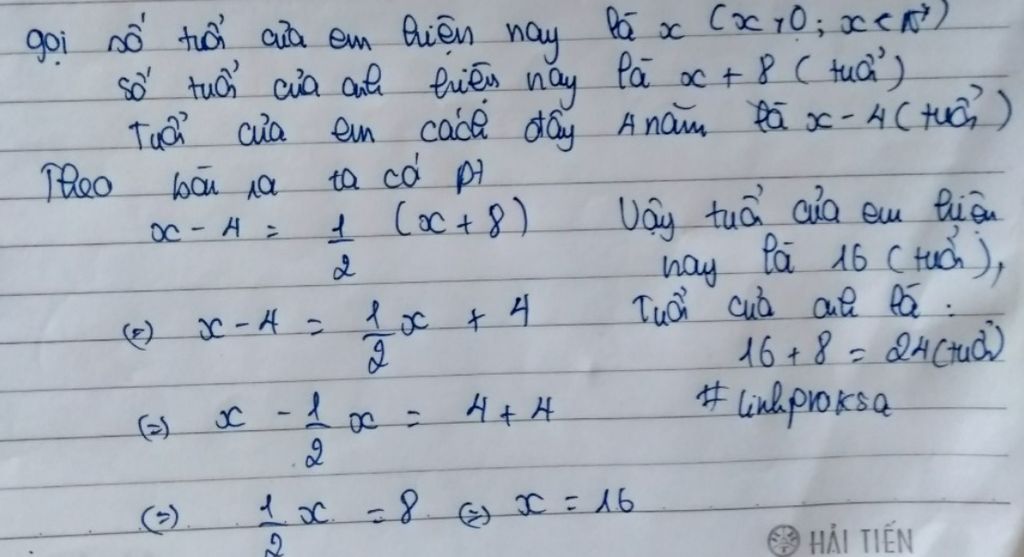 gọi số tuổi của em hiện nay là x (x > 0; x ∈ N*)
số tuổi của anh hiện nay là x + 8 (tuổi)
Tuổi của em cách đây 4 năm là x - 4 (tuổi)
Theo bài ra ta có pt
x - 4 = 1/2 (x + 8)
(=) x - 4 = 1/2 x + 4
(=) x - 1/2 x = 4 + 4
(=) 1/2 x = 8 (=) x = 16
Vậy tuổi của em hiện
nay là 16 (tuổi),
Tuổi của anh là :
16 + 8 = 24 (tuổi)
# linhproksa
HẢI TIẾN